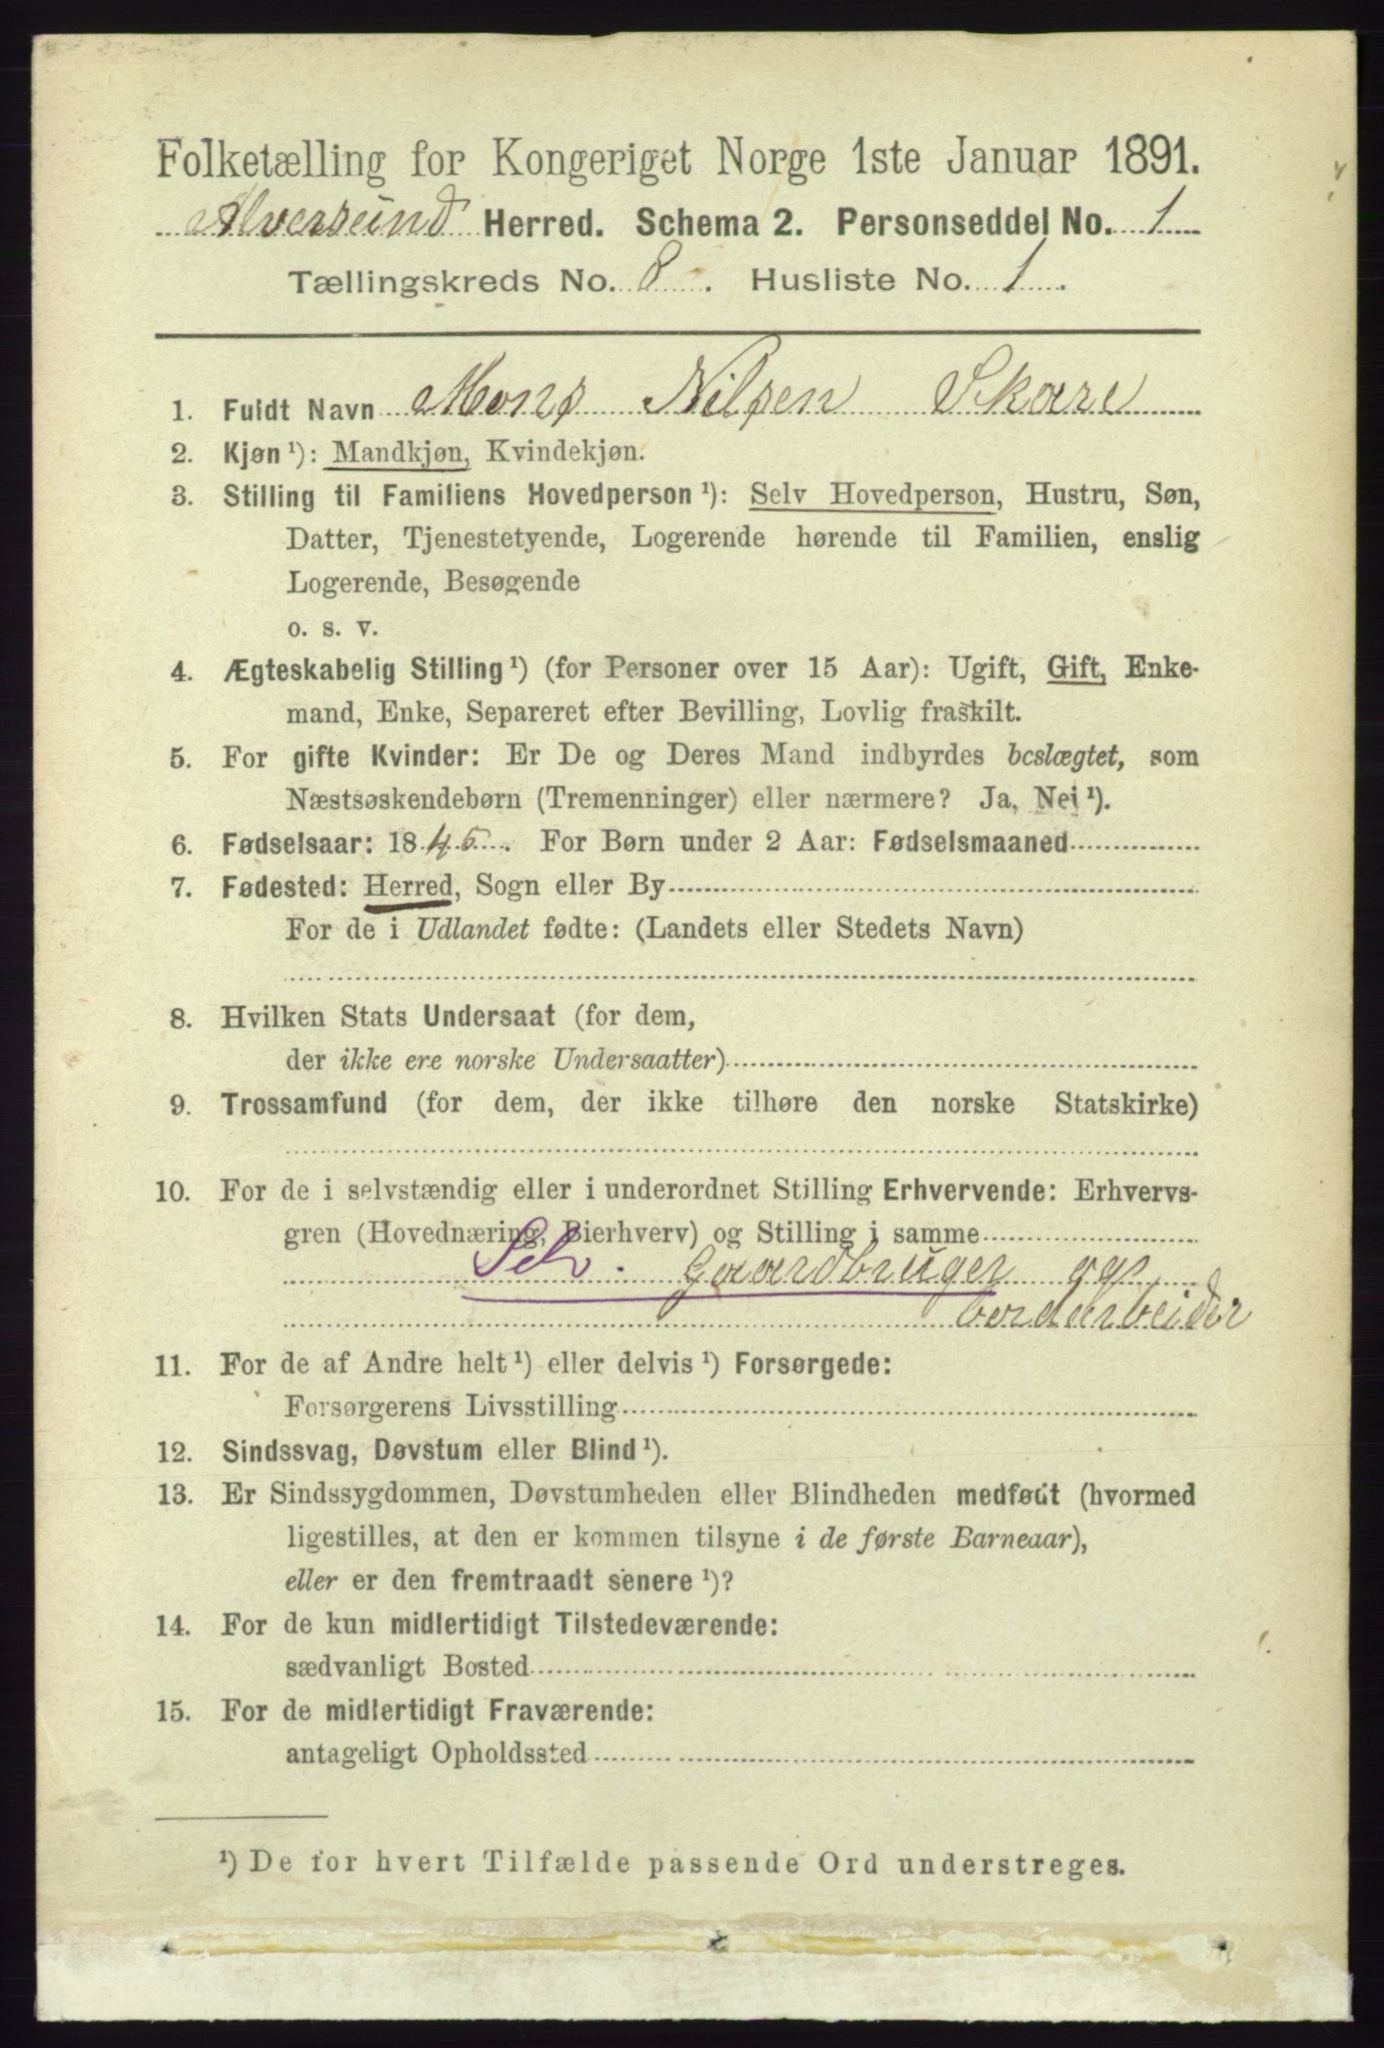 Folketælling for Kongeriget Norge 1ste Januar 1891.
Alversund Herred. Schema 2. Personseddel No. 1
Tællingskreds No. 8. Husliste No. 1.
1. Fuldt Navn Mons Nilsen Skare
2. Kjøn¹): Mandkjøn, Kvindekjøn.
3. Stilling til Familiens Hovedperson¹): Selv Hovedperson, Hustru, Søn,
Datter, Tjenestetyende, Logerende hørende til Familien, enslig
Logerende, Besøgende
o. s. v.
4. Ægteskabelig Stilling¹) (for Personer over 15 Aar): Ugift, Gift, Enke-
mand, Enke, Separeret efter Bevilling, Lovlig fraskilt.
5. For gifte Kvinder: Er De og Deres Mand indbyrdes beslægtet, som
Næstsøskendebørn (Tremenninger) eller nærmere? Ja, Nei¹).
6. Fødselsaar: 1845. For Børn under 2 Aar: Fødselsmaaned
7. Fødested: Herred, Sogn eller By
For de i Udlandet fødte: (Landets eller Stedets Navn)
8. Hvilken Stats Undersaat (for dem,
der ikke ere norske Undersaatter)
9. Trossamfund (for dem, der ikke tilhøre den norske Statskirke)
10. For de i selvstændig eller i underordnet Stilling Erhvervende: Erhvervs-
gren (Hovednæring, Bierhverv) og Stilling i samme
Selv. Gaardbruger og
11. For de af Andre helt¹) eller delvis¹) Forsørgede:
Forsørgerens Livsstilling
12. Sindssvag, Døvstum eller Blind¹).
13. Er Sindssygdommen, Døvstumheden eller Blindheden medfødt (hvormed
ligestilles, at den er kommen tilsyne i de første Barneaar),
eller er den fremtraadt senere¹)?
14. For de kun midlertidigt Tilstedeværende:
sædvanligt Bosted
15. For de midlertidigt Fraværende:
antageligt Opholdssted
¹) De for hvert Tilfælde passende Ord understreges.